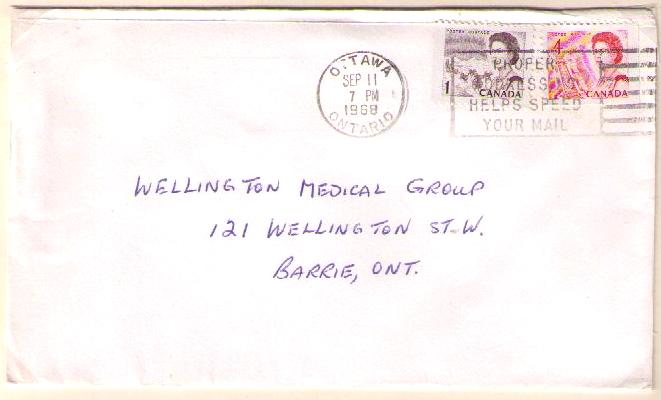 POSTES POSTAGE
1
CANADA
4
CANADA
OTTAWA
SEP 11
7 PM
1968
ONTARIO
PROPER
ADDRESSING
HELPS SPEED
YOUR MAIL
WELLINGTON MEDICAL GROUP
121 WELLINGTON ST. W.
BARRIE, ONT.